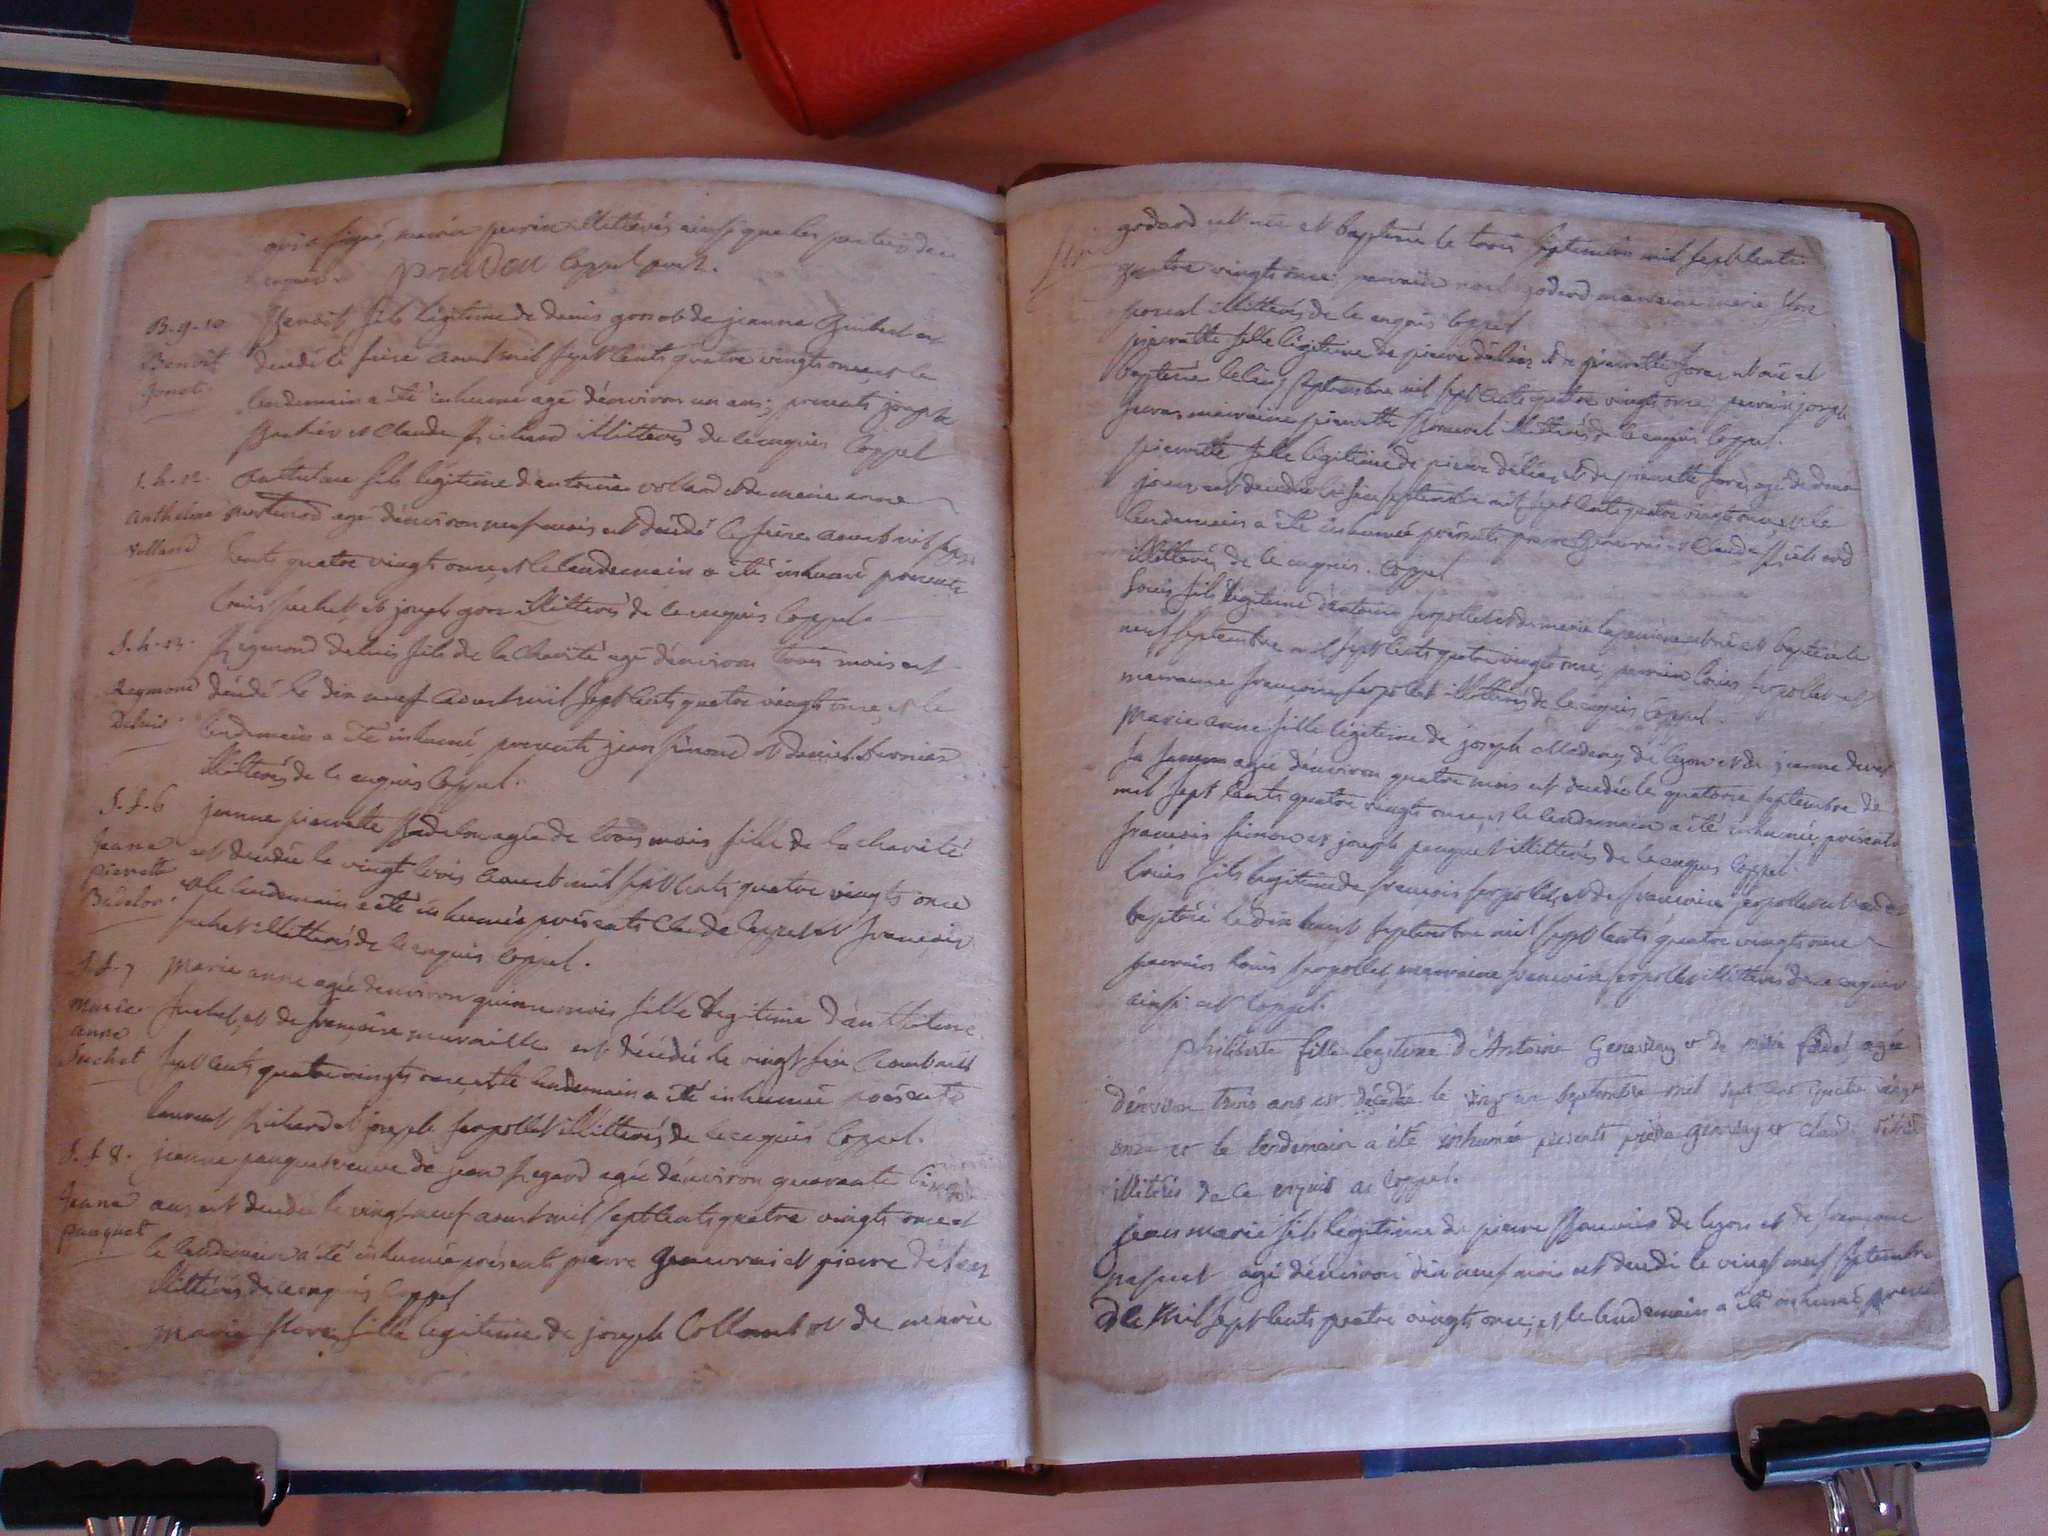 qui a signé, marin perrin illitterés ainsi que les parties de ce
enquis. prudon Coppel curé.
B. g. 10 Benoit fils légitime de denis gonod de jeanne Guibert est
Benoit décédé le seize aoust mil sept cents quatre vingts onze, et le
Gonet lendemain a été inhumé agé d'environ un ans; presents joseph
et Claude Richard illitterés de ce enquis Coppel
S. h. 12. anthelme fils légitime d'antoine volland et de marie anne
Anthelme agé d'environ neuf mois est décédé le seize aoust mil sept
Volland cents quatre vingts onze, et le lendemain a été inhumé presents
Louis suchet, et joseph illitterés de ce enquis Coppel
S. h. 13. Reymond Deluis fils de la charité agé d'environ trois mois est
Reymond décédé le dix neuf aoust mil sept cents quatre vingts onze, et le
Deluis lendemain a été inhumé, presents jean simond et daniel
illitterés de ce enquis Coppel.
S. f. 6 jeanne pierrette Badelon agée de trois mois fille de la charité
Jeane est décédée le vingt trois aoust mil sept cents quatre vingts onze
pierrette et le lendemain a été inhumée présents Claude Coppel et francois
Badelon suchet illitterés de ce enquis Coppel.
S. f. 7 Marie anne agée d'environ quinze mois fille légitime d'anthelme
Marie Suchet, et de françoise muraille est décédée le vingt six aoust mil
anne
Suchet sept cents quatre vingts onze, et le lendemain a été inhumée présents
laurent Richard et joseph serpollet illitterés de ce enquis Coppel.
S. f. 8. jeanne paquet veuve de jean Regard agée d'environ quarante cinq
Jeane ans est décédée le vingt neuf aoust mil sept cents quatre vingts onze et
paquet le lendemain a été inhumée présents pierre genevrai et pierre
illitterés de ce enquis Coppel
Marie fille légitime de joseph Collomb et de marie
godard est née et baptisée le trois septembre mil sept cents
quatre vingts onze; parrain noel godard marraine marie
illitterés de ce enquis Coppel
pierrette fille légitime de pierre et de pierrette est née et
baptisée le cinq septembre mil sept cents quatre vingts onze; parrain joseph
marraine pierrette illitterés de ce enquis Coppel.
pierrette fille légitime de pierre et de pierrette agé de deux
jours est décédée le six septembre mil sept cents quatre vingts onze, et le
lendemain a été inhumée présents pierre genevrai et Claude Richard
illitterés de ce enquis. Coppel
Louis fils légitime d'antoine serpollet et de marie est né et baptisé le
neuf septembre mil sept cents quatre vingts onze; parrain louis serpollet et
marraine françoise serpollet illitterés de ce enquis Coppel.
Marie anne fille légitime de joseph de lyon et de jeanne
sa femme agée d'environ quatre mois est décédée le quatorze septembre de
mil sept cents quatre vingts onze, et le lendemain a été inhumée, présents
francois simon et joseph paquet illitterés de ce enquis Coppel.
Louis fils légitime de françois serpollet, et de françoise serpollet est né et
baptisé le dix huit septembre mil sept cents quatre vingts onze
parrain Louis serpollet, marraine françoise serpollet illitterés de ce enquis
ainsi est Coppel.
Philiberte fille legitime d'Antoine Genevray et de agée
d'environ trois ans est décédée le vingt un septembre mil sept cent quatre vingt
onze et le lendemain a été inhumée présents pierre genevray et Claude
illitérés de ce enquis Coppel.
jean marie fils légitime de pierre de lyon et de françoise
paquet agé d'environ dix neuf mois est décédé le vingt neuf septembre
de mil sept cents quatre vingts onze; et le lendemain a été inhumé